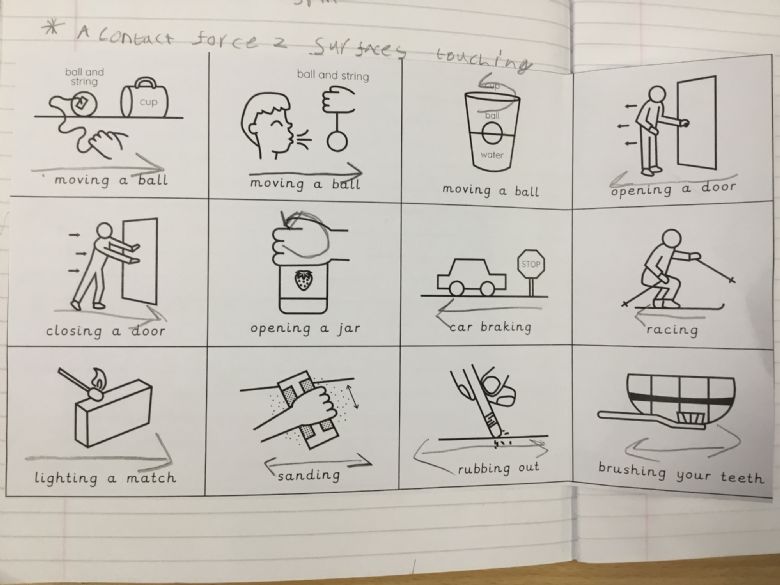 * A contact force 2 surfaces touching
ball and
string
cup
moving a ball
ball and string
moving a ball
ball
water
moving a ball
opening a door
closing a door
opening a jar
STOP
car braking
racing
lighting a match
sanding
rubbing out
brushing your teeth